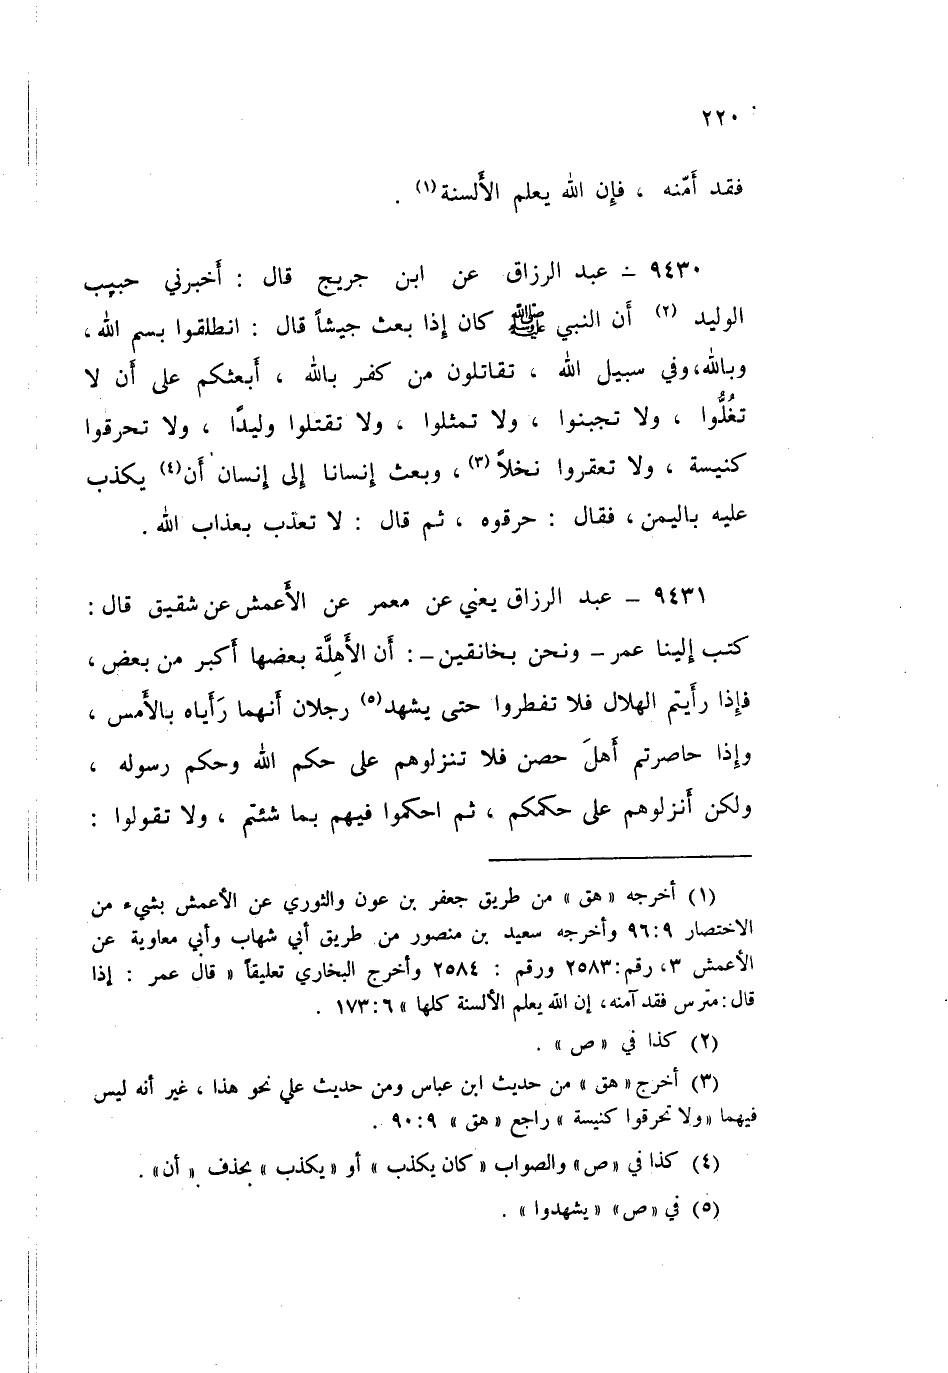 ٢٢٠
فقد أَمّنه ، فإن الله يعلم الأَلسنة(١) .
٩٤٣٠ – عبد الرزاق عن ابن جريج قال : أَخبرني حبيب
الوليد (٢) أَن النبي ﷺ كان إِذا بعث جيشاً قال : انطلقوا بسم الله ،
وبالله، وفي سبيل الله ، تقاتلون من كفر بالله ، أَبعثكم على أَن لا
تغُلُّوا ، ولا تجبنوا ، ولا تمثلوا ، ولا تقتلوا وليدًا ، ولا تحرقوا
كنيسة ، ولا تعقروا نخلاً(٣) ، وبعث إِنسانا إِلى إِنسان أَن(٤) يكذب
عليه باليمن ، فقال : حرقوه ، ثم قال : لا تعذب بعذاب الله .
٩٤٣١ – عبد الرزاق يعني عن معمر عن الأَعمش عن شقيق قال :
كتب إِلينا عمر – ونحن بخانقين – : أَن الأَهِلَّة بعضها أَكبر من بعض ،
فإِذا رأَيتم الهلال فلا تفطروا حتى يشهد(٥) رجلان أَنهما رَأَياه بالأَمس ،
وإِذا حاصرتم أَهلَ حصن فلا تنزلوهم على حكم الله وحكم رسوله ،
ولكن أَنزلوهم على حكمكم ، ثم احكموا فيهم بما شئتم ، ولا تقولوا :
(١) أخرجه «هق» من طريق جعفر بن عون والثوري عن الأعمش بشيء من
الاختصار ٩٦:٩ وأخرجه سعيد بن منصور من طريق أبي شهاب وأبي معاوية عن
الأعمش ٣، رقم: ٢٥٨٣ ورقم : ٢٥٨٤ وأخرج البخاري تعليقاً « قال عمر : إذا
قال : مترس فقد آمنه ، إن الله يعلم الألسنة كلها » ١٧٣:٦ .
(٢) كذا في « ص » .
(٣) أخرج «هق» من حديث ابن عباس ومن حديث علي نحو هذا ، غير أنه ليس
فيهما «ولا تحرقوا كنيسة» راجع «هق» ٩٠:٩ .
(٤) كذا في «ص» والصواب «كان يكذب» أو «يكذب» بحذف «أن» .
(٥) في «ص» «يشهدوا» .